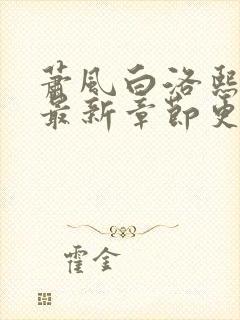 萧风白洛熙
最新章节更
霍金